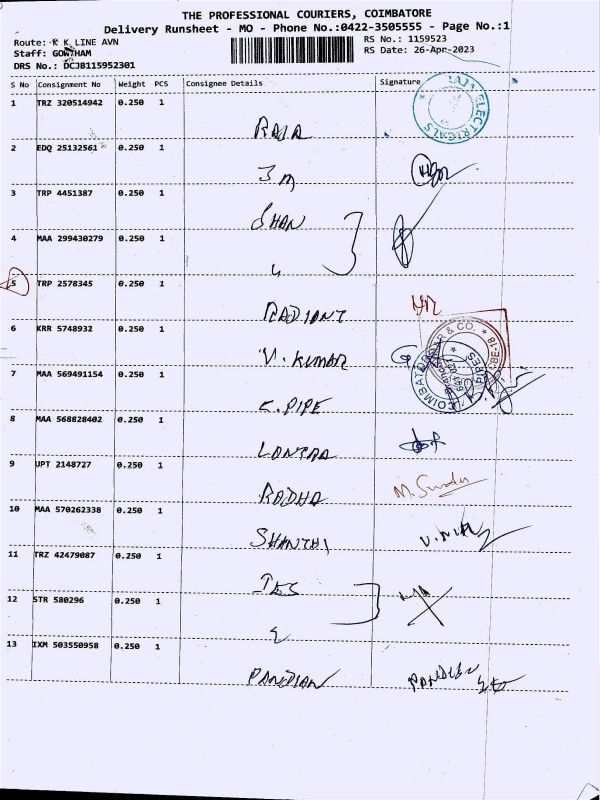 THE PROFESSIONAL COURIERS, COIMBATORE
Delivery Runsheet - MO - Phone No.:0422-3505555 - Page No.:1
Route: K K LINE AVN
RS No.: 1159523
Staff: GOWTHAM
RS Date: 26-Apr-2023
DRS No.: DCJB115952301
S No Consignment No Weight PCS Consignee Details Signature
1 TRZ 320514942 0.250 1
RAJA
ELECTRICALS
2 EDQ 25132561 0.250 1
J M
3 TRP 4451387 0.250 1
SHAN
4 MAA 299430279 0.250 1
"
5 TRP 2578345 0.250 1
RADIANT
6 KRR 5748932 0.250 1
V. KUMAR
& CO.
7 MAA 569491154 0.250 1
PIPES
C. PIPE
8 MAA 568828402 0.250 1
LONTRA
9 UPT 2148727 0.250 1
RADHA
10 MAA 570262338 0.250 1
SHANTHI
11 TRZ 42479087 0.250 1
12 STR 580296 0.250 1
13 IXM 503550958 0.250 1
PANDIAN